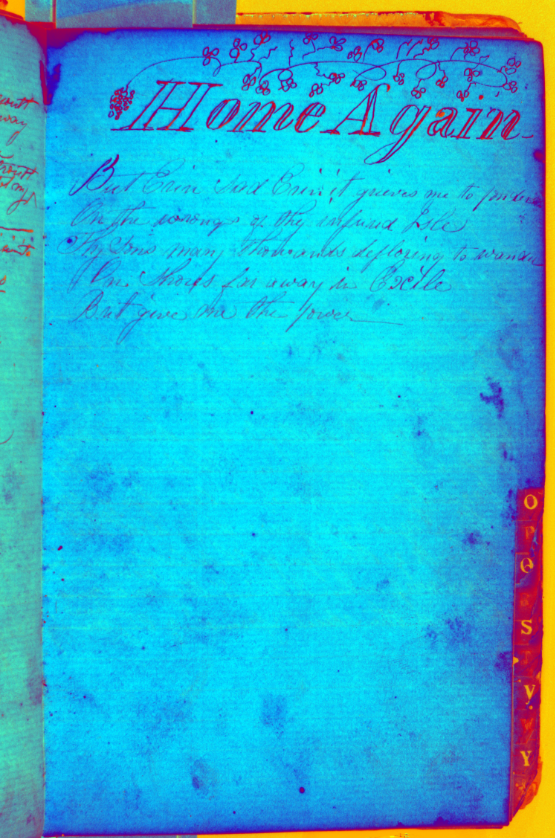 Home Again
But Erin sad Erin it grieves me to
On the wrongs of thy
Isle
Thy Sons many thousands deploring to wander
On Shores far away in Excile
But give me the power
O
P
Q
S
V
Y